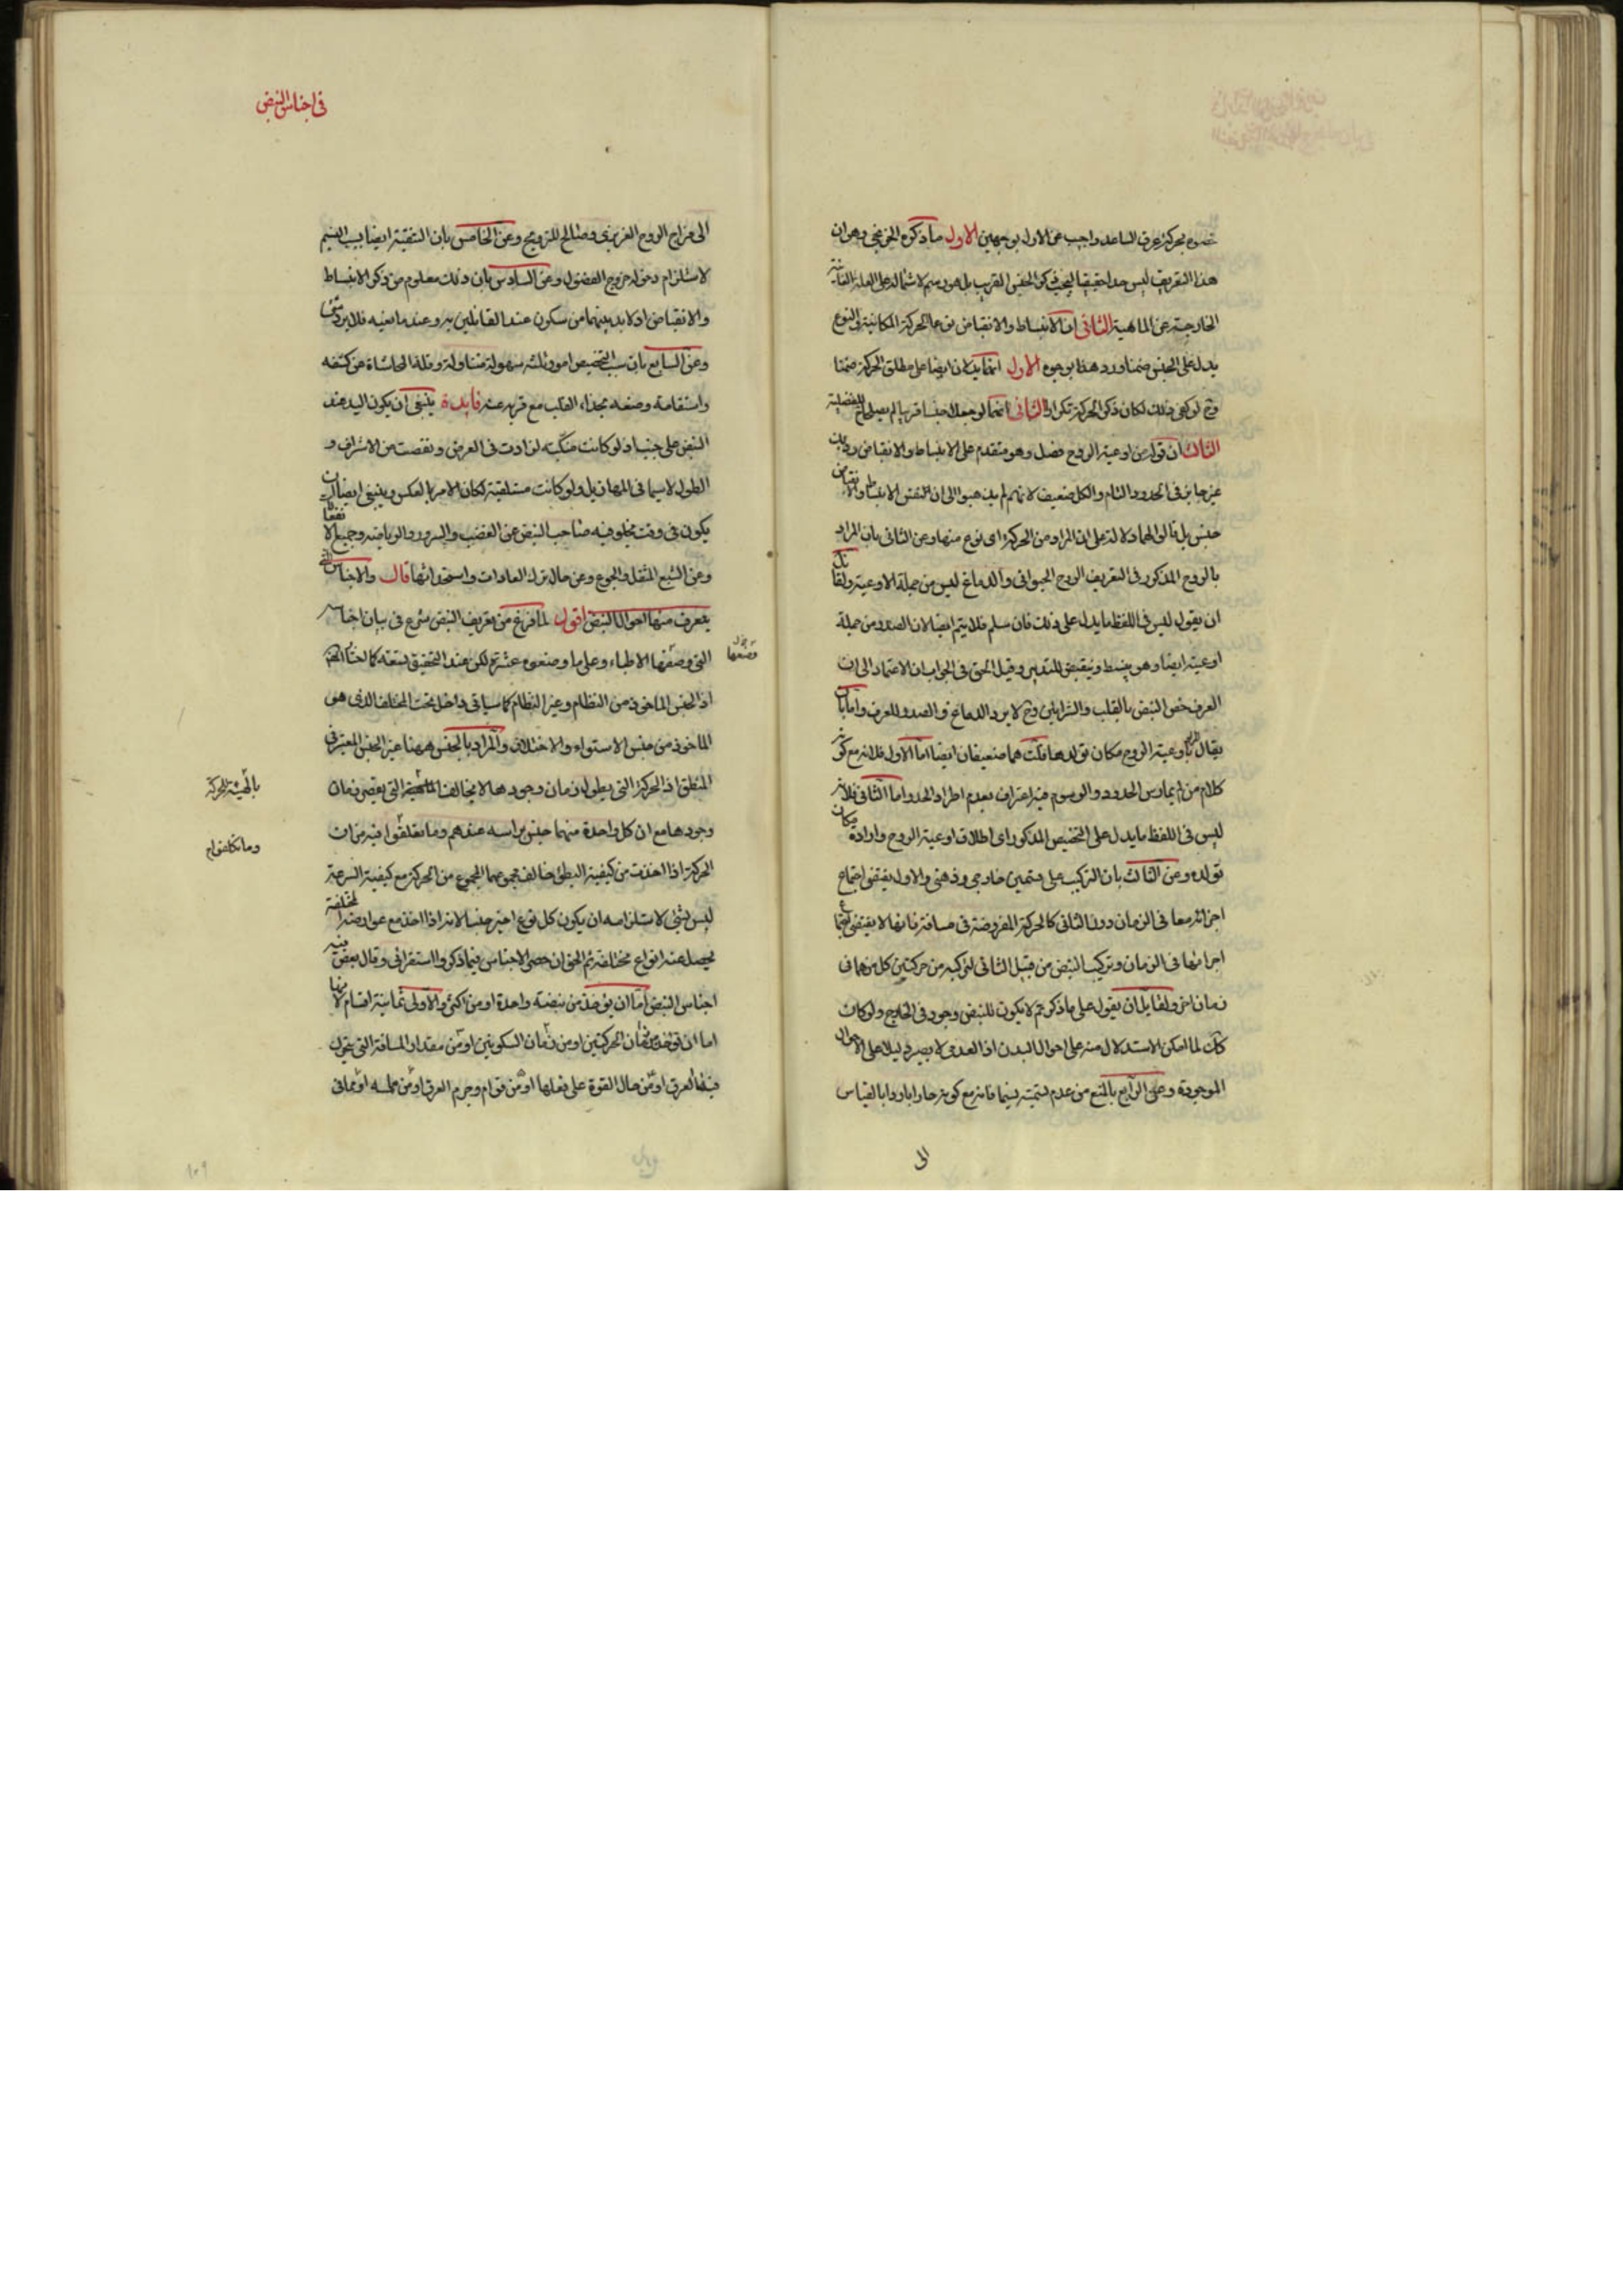 خصوه بحركة عرق الساعد واجيب عن الاول بوجهين الاول ما ذكره الخونجى وهو ان
هذا التعريف ليس حدا حقيقيا ليجب ذكر الجنس القريب بل هو رسم لاشتماله على العلة الغائية
الخارجية عن الماهية الثانى ان الانبساط والانقباض نوعا الحركة المكانية والنوع
يدل على الجنس ضمنا ورد هذا بوجوه الاول انهما يدلان ايضا على مطلق الحركة ضمنا
وح لو كفى ذلك لكان ذكر الحركة تكرارا الثانى انهما لو جعلا جنسا قريبا لم يصلحا للفصلية
الثالث ان قوله من اوعية الروح فصل وهو متقدم على الانبساط والانقباض ورد بان
غير جايز فى الحدود التام والكل ضعيف لانهم لم يذهبوا الى ان نفس الانبساط والانقباض
جنس بل قالوا لهما دلالة على ان المراد من الحركة اى نوع منها وعن الثانى بان المراد
بالروح المذكور فى التعريف الروح الحيوانى والدماغ ليس من جملة الاوعية ولقائل
ان يقول ليس فى اللفظ ما يدل على ذلك فان سلم فلا يتم ايضا لان الصدر من جملة
اوعيته ايضا وهو ينبسط وينقبض للتنفس وقيل الحق فى الجواب ان الاعتماد الى ان
العرف خص النبض بالقلب والشرايين وح لا يرد الدماغ والصدر للعرف واما بان
يقال المراد باوعية الروح مكان تولدها قلت هما ضعيفان ايضا اما الاول فلانه مع كونه
كلام من لم يمارس الحدود والرسوم فيه اعتراف بعدم اطراد الحد واما الثانى فلانه
ليس فى اللفظ ما يدل على التخصيص المذكور اى اطلاق اوعية الروح وارادة مكان
تولده وعن الثالث بان التركيب على قسمين خارجى وذهنى والاول يقتضى اجتماع
اجزائه معا فى الزمان دون الثانى كالحركة المفروضة فى مسافة فانها لا يقتضى اجتماع
اجزائها فى الزمان وتركيب النبض من قبيل الثانى لتركبه من حركتين كل منهما فى
زمان اخر ولقايل ان يقول على ما ذكرتم لا يكون للنبض وجود فى الخارج ولو كان
كذلك لما امكن الاستدلال منه على احوال البدن اذ العدمى لا يصير دليلا على الاحوال
الموجودة وعن الرابع بالمنع من عدم تسميته نسيما فانه مع كونه حارا بارد بالقياس
الى
فى اجناس النبض
الى مزاج الروح الغريزى وصالح للترويح وعن الخامس بان التنقية ايضا بسبب النسيم
لاستلزام دخوله خروج الفضول وعن السادس بان ذلك معلوم من ذكر الانبساط
والانقباض اذ لا بد بينهما من سكون عند القايلين به وعند ما نفيه فلا يرد شىء
وعن السابع بان سبب التخصيص امور ثلثه سهولة متناوله وقلة المحاشاة من كشفه
واستقامة وضعه بحذاء القلب مع قربه عنه فايدة ينبغى ان يكون اليد عند
النبض على جنب اذ لو كانت منكبة لزادت فى العرض ونقصت من الاشراف و
الطول لاسيما فى المهازيل ولو كانت مستلقية لكان الامر بالعكس وينبغى ايضا ان
يكون فى وقت يخلو فيه صاحب النبض عن الغضب والسرور والرياضة وجميع الانفعالات
وعن الشبع المثقل والجوع وعن حال ترك العادات واستحداثها قال والاجناس التى
يتعرف منها احوال النبض اقول لما فرغ من تعريف النبض شرع فى بيان اجناسه
التى وصفها الاطباء وعلى ما وضعوه عشرة لكن عند التحقيق تسعة
يقول وضعها
اذ الجنس الماخوذ من النظام وغير النظام كما سياتى داخل تحت المختلف الذى هو
الماخوذ من جنس الاستواء والاختلاف والمراد بالجنس ههنا غير الجنس المعتبر فى
المنطق اذ الحركة التى يطول زمان وجودها لا يخالف بالمهية التى يقصر زمان
بالهيئة الحركة
وجودها مع ان كل واحدة منهما جنس براسه عندهم وما تعلقوا فيه من ان
وما تكلفوا
الحركة اذا اخذت من كيفية البطؤ خالف مجموعهما المجموع من الحركة مع كيفية السرعة
ليس بشئ لاستلزامه ان يكون كل نوع اخير جنسا لانه اذا اخذ مع عوارضه المختلفة
يحصل عنه انواع مختلفة ثم الحق ان حصر الاجناس فيما ذكروا استقرائى وقال بعض
اجناس النبض اما ان يؤخذ من نبضة واحدة او من اكثر والاولى ثمانية اقسام لانها
اما ان توخذ من زمان الحركتين او من زمان السكونين او من مقدار المسافة التى يتحرك
فيها العرق او من حال القوة على فعلها او من قوام وجرم العرق او من ملمسه او مما فى
١٠٩